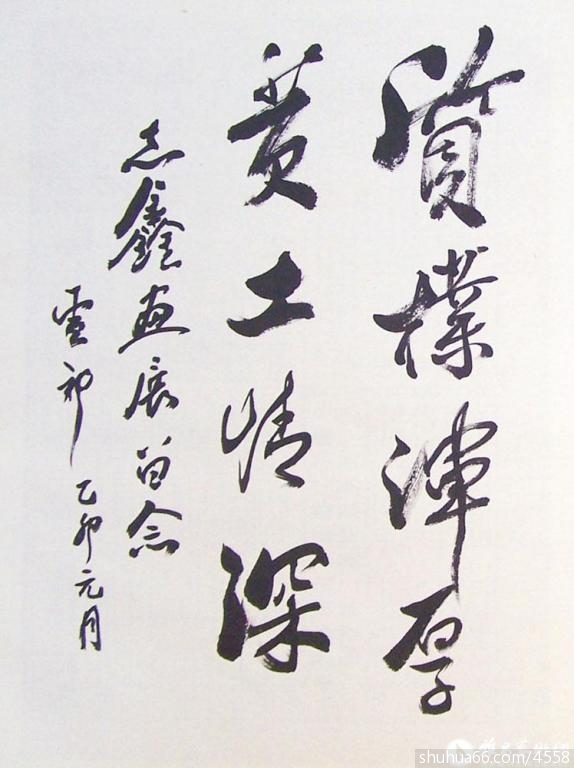 質樸渾厚
黄土情深
志鑫画展留念
乙卯元月
shuhua66.com/4558